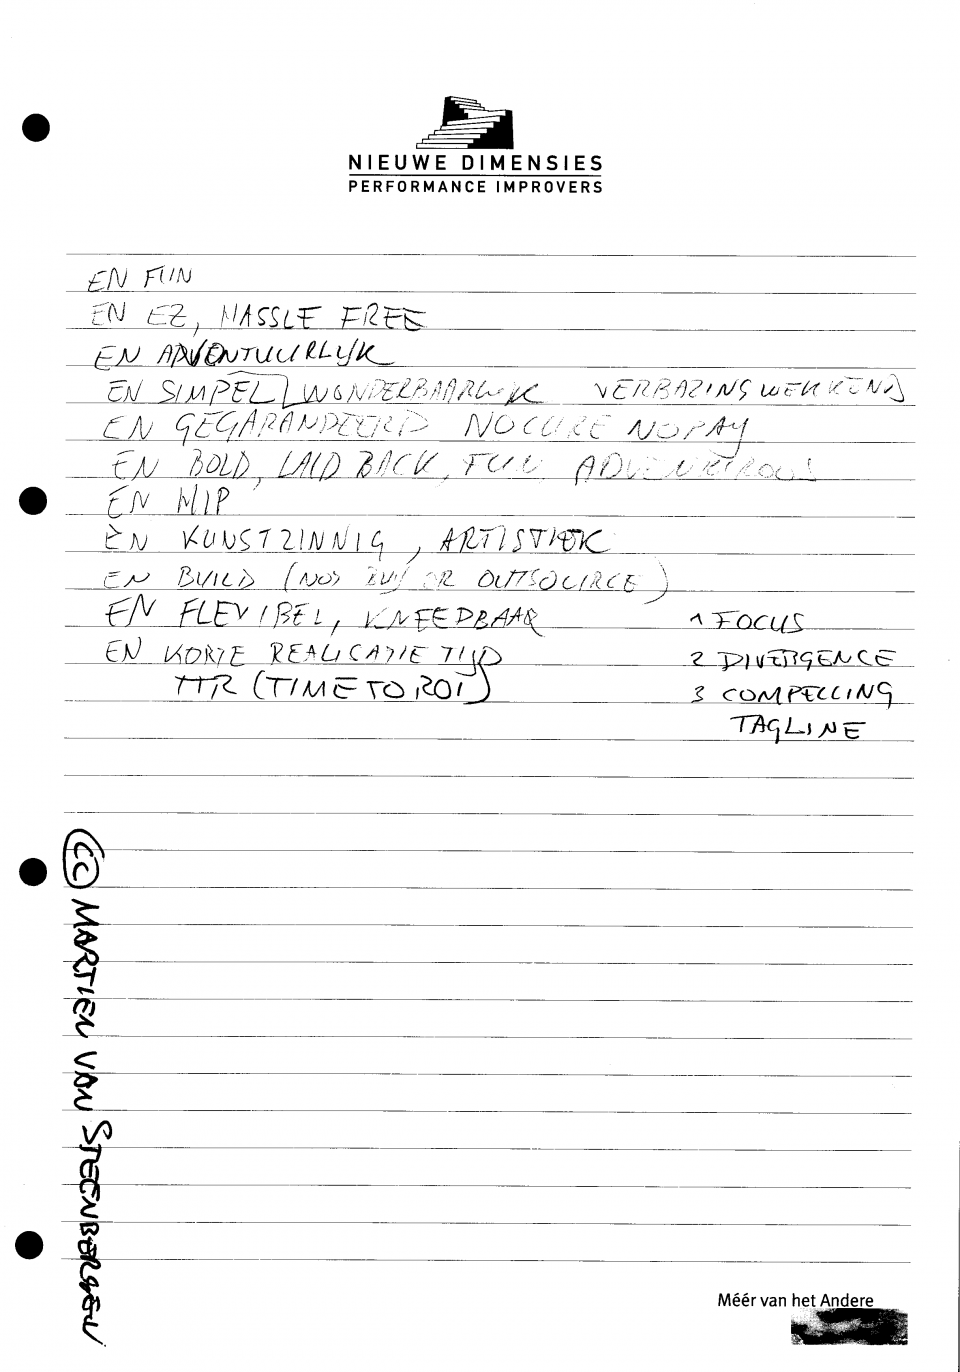 NIEUWE DIMENSIES
PERFORMANCE IMPROVERS
EN FUN
EN EZ, HASSLE FREE
EN ADVENTUURLIJK
EN SIMPEL WONDERBAARLIJK VERBAZINGWEKKEND
EN GEGARANDEERD NO CURE NO PAY
EN BOLD, LAID BACK, FUN, ADVENTROUS
EN HIP
EN KUNSTZINNIG, ARTISTIEK
EN BUILD (NOT BUY OR OUTSOURCE)
EN FLEXIBEL, KNEEDBAAR
EN KORTE REALICATIE TIJD
TTR (TIME TO ROI)
1 FOCUS
2 DIVERGENCE
3 COMPELLING
TAGLINE
(CC) MARTIEN VAN STEENBERGEN
Méér van het Andere